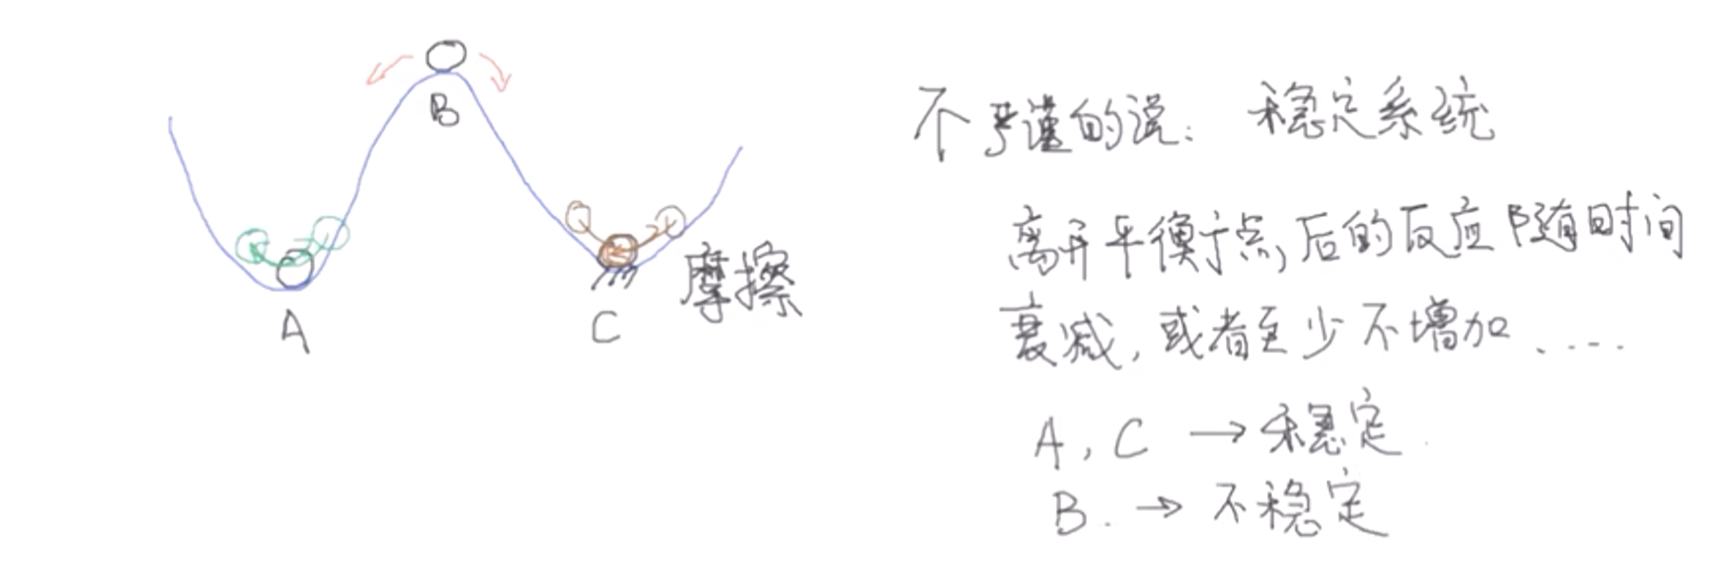 B
A
C
摩擦
不严谨的说: 稳定系统
离开平衡点后的反应随时间
衰减, 或者至少不增加.....
A, C → 稳定
B. → 不稳定